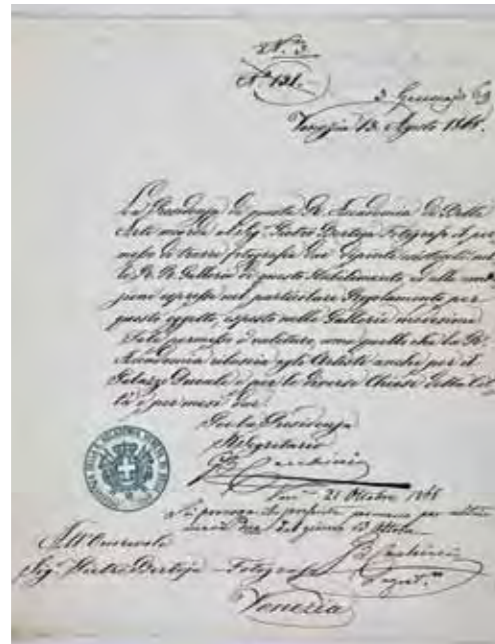 N. 3
N.° 131.
3. Gennajo 69
Venezia 13. Agosto 1868.
La Presidenza di questa R. Accademia di Belle
Arti al Sig. Pietro Bertoja Fotografo il per
messo di trarre fotografie dai dipinti esistenti nel
le R. R. Gallerie di questo Stabilimento, ed alle condi
zioni espresse nel particolare Regolamento per
questo oggetto, esposto nelle Gallerie medesime
Tale permesso è valituro, come quello che la R.
Accademia rilascia agli Artisti anche per il
Palazzo Ducale e per le diverse Chiese della Cit
tà e per mesi due.
Per la Presidenza
Il Segretario
G B Cecchini
21 Ottobre 1868
Si proroga il presente permesso per altri
mesi Due dal giorno 13 Ottobre
G B Cecchini
All' Onorevole
Sig. Pietro Bertoja - Fotografo
Venezia